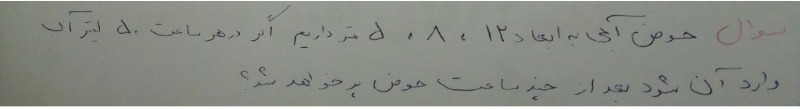 سوال حوض آبی به ابعاد ۱۲ ، ۸ ، ۵ متر داریم اگر در هر ساعت ۵۰ لیتر آب
وارد آن شود بعد از چند ساعت حوض پر خواهد شد؟